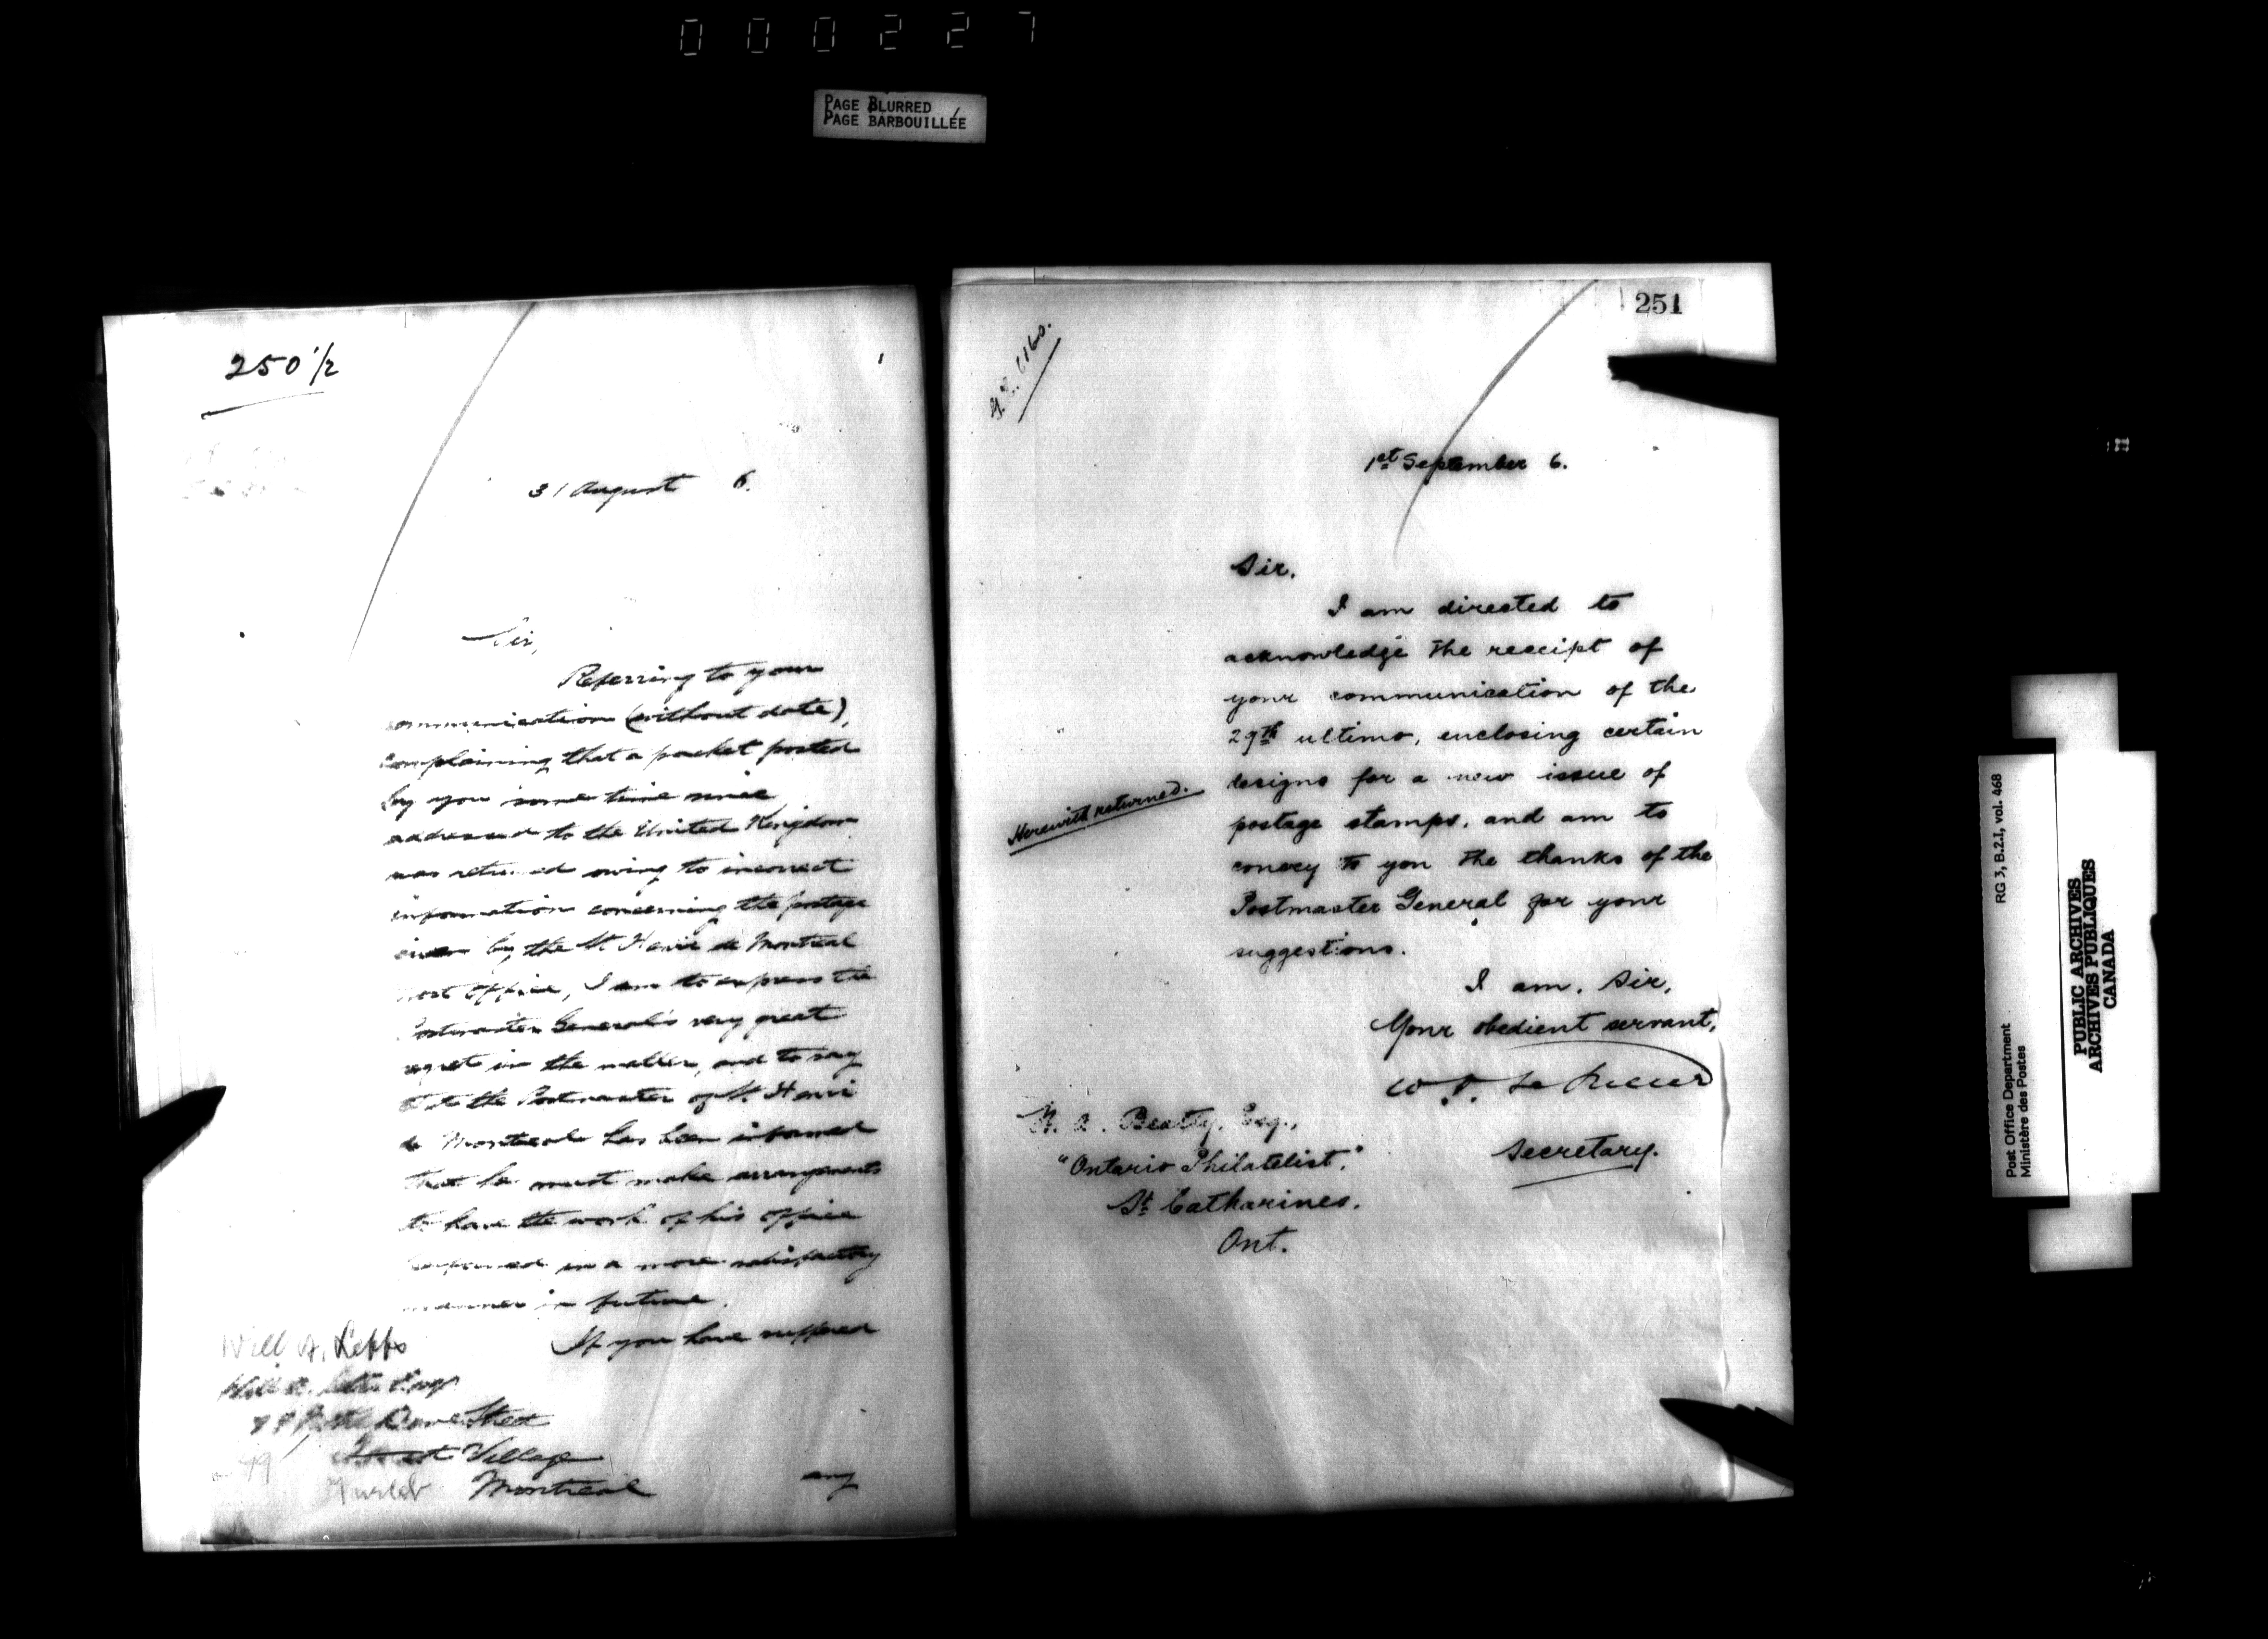 000227
PAGE BLURRED
PAGE BARBOUILLÉE
250 1/2
31 August 6.
Sir,
Referring to your
communication (without date),
complaining that a packet posted
by you some time since
addressed to the United Kingdom
was returned owing to incorrect
information concerning the postage
given by the St Henri de Montreal
Post Office, I am to express the
Postmaster General's very great
regret in the matter, and to say
that the Postmaster of St. Henri
de Montreal has been informed
that he must make arrangements
to have the work of his office
performed in a more satisfactory
manner in future.
If you have suffered
Will A.
Street
Village
Montreal
any
251
1st September 6.
Sir.
I am directed to
acknowledge the receipt of
your communication of the
29th ultimo, enclosing certain
designs for a new issue of
postage stamps, and am to
convey to you the thanks of the
Postmaster General for your
suggestions.
Herewith returned.
I am, Sir,
Your obedient servant,
Secretary.
A. Beatty, Esq.,
"Ontario Philatelist,"
St. Catharines.
Ont.
RG 3, B.2.I, vol. 468
Post Office Department
Ministère des Postes
PUBLIC ARCHIVES
ARCHIVES PUBLIQUES
CANADA